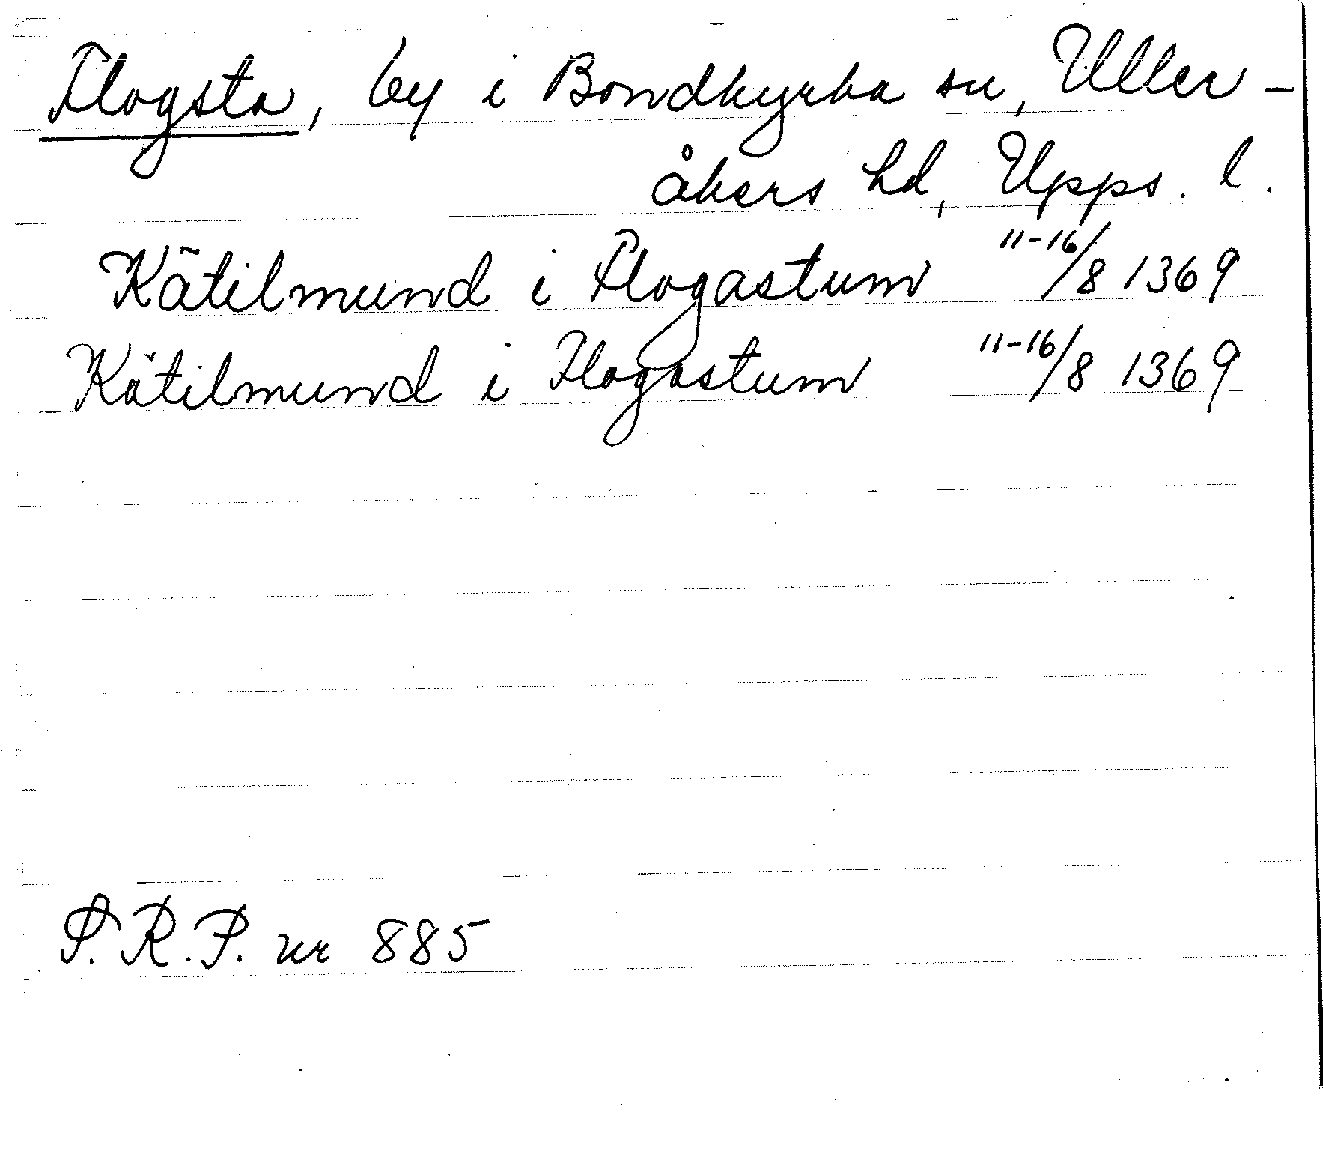 Flogsta, by i Bondkyrka sn, Uller-
åkers hd, Upps. l.
Kätilmund i Flogastum 11-16/8 1369
Kätilmund i Flogastum 11-16/8 1369
P.R.P. nr 885